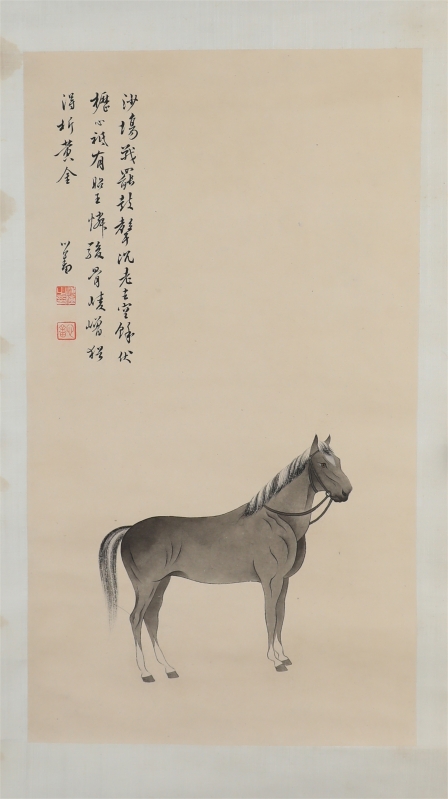 沙場戰罷鼓聲沉老去空餘伏
櫪心祇有昭王憐駿骨崚嶒猶
得折黃金
心畬